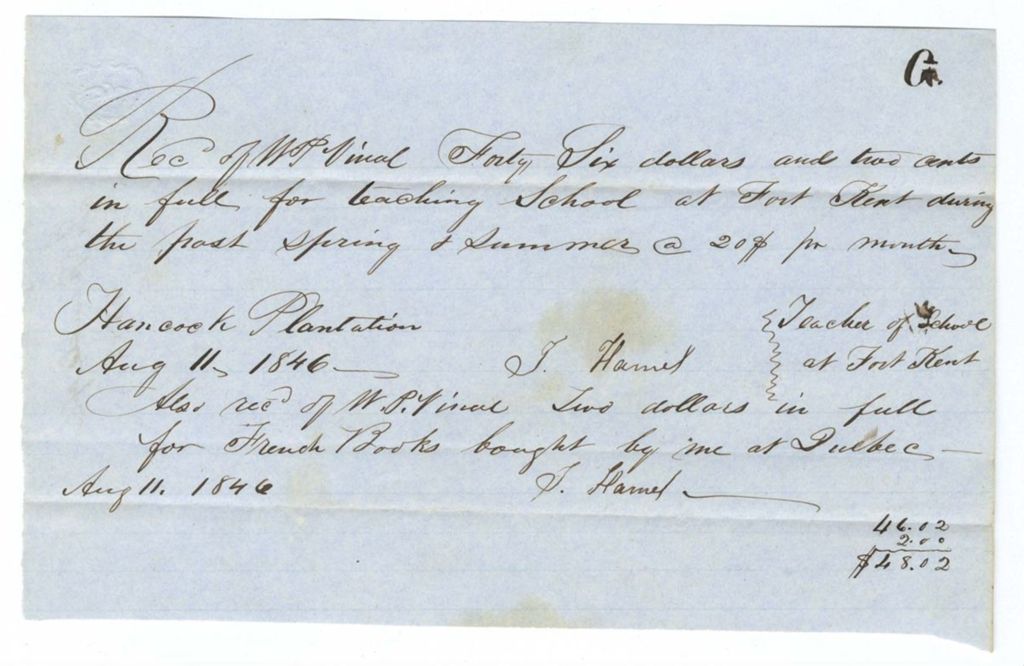 G.
Recd of W P Vinal Forty Six dollars and two cents
in full for teaching School at Fort Kent during
the past spring & summer @ 20$ pr month
Hancock Plantation
Teacher of School
Aug 11, 1846 — J. Hamel
at Fort Kent
Also recd of W. P. Vinal Two dollars in full
for French Books bought by me at Qulbec —
Aug 11. 1846 J. Hamel
46.02
2.00
$48.02